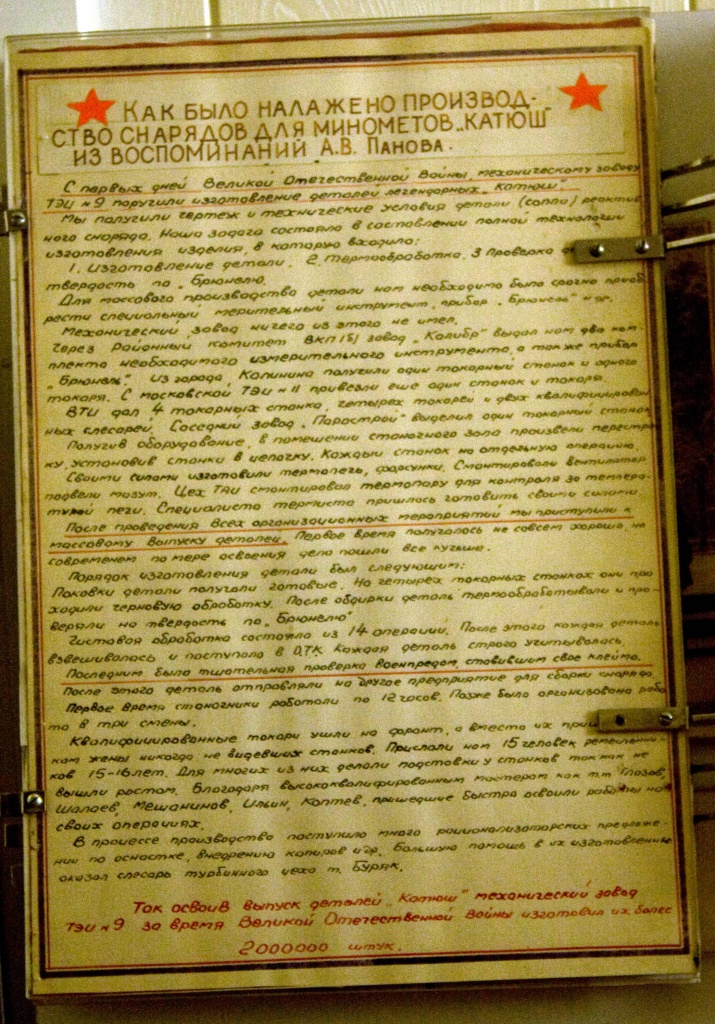 КАК БЫЛО НАЛАЖЕНО ПРОИЗВОД-
СТВО СНАРЯДОВ ДЛЯ МИНОМЕТОВ „КАТЮШ"
ИЗ ВОСПОМИНАНИЙ А.В. ПАНОВА.
С первых дней Великой Отечественной Войны, механическому заводу
ТЭЦ №9 поручили изготовление деталей легендарных „Катюш".
Мы получили чертеж и технические условия детали (сопло) реактив
ного снаряда. Наша задача состояла в составлении полной технологии
изготовления изделия, в которую входило:
1. Изготовление детали. 2. Термообработка. 3 Проверка
твердость по „Брюнелю.
Для массового производства детали нам необходимо было срочно приоб
рести специальный мерительный инструмент, прибор „Брюнель" и др.
Механический завод ничего из этого не имел.
Через Районный комитет ВКП(б) завод „Калибр" выдал нам два ком
плекта необходимого измерительного инструмента, а также прибор
„Брюнель". Из города Калинина получили один токарный станок и одного
токаря. С московской ТЭЦ №11 привезли еще один станок и токаря.
ВТИ дал 4 токарных станка, четырех токарей и двух квалифицирован
ных слесарей. Соседний завод „Парострой" выделил один токарный станок
Получив оборудование, в помещении станочного зала произвели перестрой
ку, установив станки в цепочку. Каждый станок на отдельную операцию.
Своими силами изготовили термопечь, форсунки. Смонтировали вентилятор
подвели мазут. Цех ТАИ смонтировал термопару для контроля за темпера-
турой печи. Специалиста термиста пришлось готовить своими силами.
После проведения всех организационных мероприятий мы приступили к
массовому выпуску деталей. Первое время получалось не совсем хорошо, но
современем по мере освоения дела пошли все лучше.
Порядок изготовления детали был следующим:
Поковки детали получали готовые. На четырех токарных станках они про
ходили черновую обработку. После обдирки деталь термообработывали и про-
веряли на твердость по „Брюнелю"
Чистовая обработка состояла из 14 операций. После этого каждая деталь
взвешивалась и поступала в ОТК. Каждая деталь строго учитывалась.
Последним была тщательная проверка военпредом, ставившим свое клеймо.
После этого деталь отправляли на другое предприятие для сборки снаряда.
Первое время станочники работали по 12 часов. Позже была организована рабо
та в три смены.
Квалифицированные токари ушли на фронт, а вместо их
жены никогда не видевших станков. Прислали нам 15 человек
ков 15-16 лет. Для многих из них делали подставки у станков так как не
вышли ростом. Благодаря высококвалифированным мастерам как т.т. Глазов,
Шалаев, Мешанинов, Ильин, Коптев, пришедшие быстро освоили работы на
своих операциях.
В процессе производства поступило много рационализаторских предложе-
нии по оснастке, внедрению копиров и др. Большую помощь в их изготовлении
оказал слесарь турбинного цеха т. Буряк.
Так освоив выпуск деталей „Катюш" механический завод
ТЭЦ №9 за время Великой Отечественной Войны изготовил их более
2000000 штук.